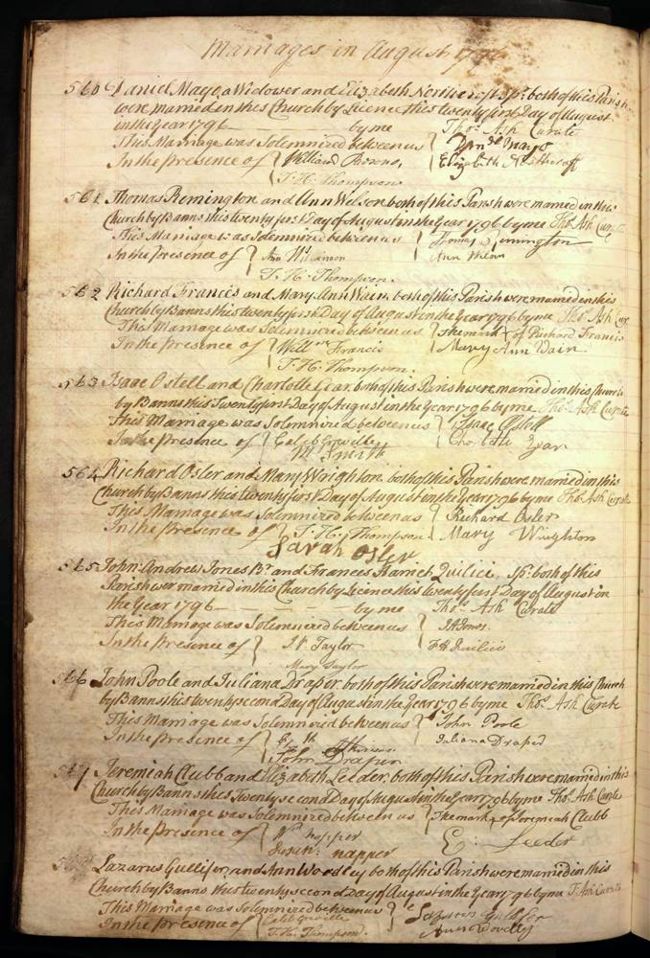 Marriages in August 1796
560 Daniel Mayo, a Widower and Elizabeth Northcroft Sp: both of this Parish
were married in this Church by Licence this twenty first Day of August
in the Year 1796 by me Thos. Ash Curate
This Marriage was Solemnized between us } Danel Mayo
In the Presence of } William Elizabeth Northcroft
T. H. Thompson
561 Thomas Remington and Ann Wilson, both of this Parish were married in this
Church by Banns this twenty first Day of August in the Year 1796 by me Thos. Ash
This Marriage was Solemnized between us } Remington
In the Presence of } Ann
T. H. Thompson.
562 Richard Francis and Mary Ann Wain, both of this Parish were married in this
Church by Banns this twenty first Day of August in the Year 1796 by me Thos. Ash Cur
This Marriage was Solemnized between us } The mark X of Richard Francis
In the Presence of } Willm Francis Mary Ann Vain
T. H. Thompson.
563 Isaac Ostell and Charlotte Gear, both of this Parish were married in this Church
by Banns this Twenty first Day of August in the Year 1796 by me Thos. Ash Curate
This Marriage was Solemnized between us } Isaac Ostell
In the Presence of } Caleb Greville Charlotte Gear
W Smith
564 Richard Osler and Mary Wrighton, both of this Parish were married in this
Church by Banns this twenty first Day of August in the Year 1796 by me Thos. Ash Curate
This Marriage was Solemnized between us } Richard Osler
In the Presence of } T. H. Thompson Mary Wrighton
Sarah Osler
565 John Andrew Jones Br. and Frances Harriet Quilici, Sp: both of this
Parish wer married in this Church by Licence this twenty first Day of August in
the Year 1796 by me Thos. Ash Curate
This Marriage was Solemnized between us } J A Jones.
In the Presence of } Taylor F H Quilici
Mary Taylor
566 John Poole and Juliana Draper, both of this Parish were married in this Church
by Banns this twenty second Day of August in the Year 1796 by me Thos. Ash Curate
This Marriage was Solemnized between us } John Poole
In the Presence of } Juliana Draper
John Draper
567 Jeremiah Clubb and Elizabeth Leeder, both of this Parish were married in this
Church by Banns this Twenty second Day of August in the Year 1796 by me Thos. Ash Curate
This Marriage was Solemnized between us } The mark X of Jeremiah Clubb
In the Presence of } Wm Napper E: Leeder
Susan: napper
Lazarus Gullifer, and Ann Woodley both of this Parish were married in this
Church by Banns this twenty second Day of August in the Year 1796 by me T. Ash Curate
This Marriage was Solemnized between us } Lazarus Gullifer
In the Presence of } Greville
T. H. Thompson.